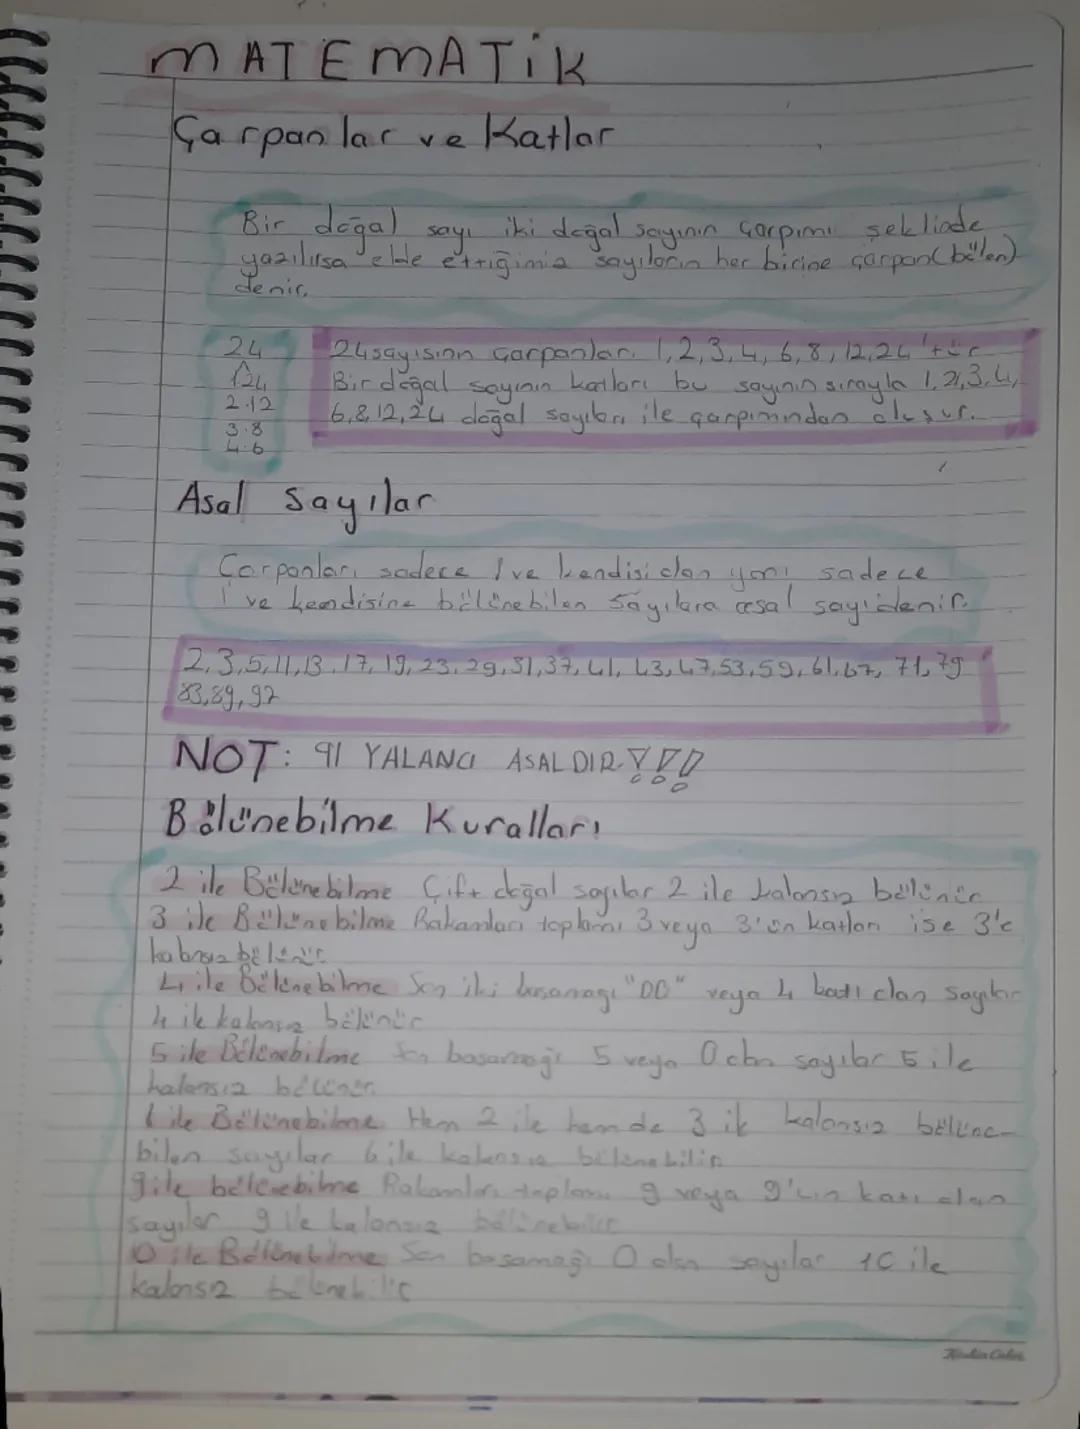 MATEMATİK
Çarpanlar ve Katlar
Bir doğal sayı iki doğal sayının çarpımı şeklinde
yazılırsa elde ettiğimiz sayıların her birine çarpan(bölen)
denir.
24
1.24
2.12
3.8
4.6
24 sayısının çarpanları 1,2,3,4,6,8,12,24'tür
Bir doğal sayının katları bu sayının sırayla 1,2,3,4,
6,8,12,24 doğal sayıları ile çarpımından oluşur.
Asal Sayılar
Çarpanları sadece 1 ve kendisi olan yani sadece
1 ve kendisine bölünebilen sayılara asal sayı denir.
2,3,5,11,13,17,19,23,29,31,37,41,43,47,53,59,61,67,71,79
83,89,97
NOT: 91 YALANCI ASALDIR!!!
Bölünebilme Kuralları
2 ile Bölünebilme Çift doğal sayılar 2 ile kalansız bölünür
3 ile Bölünebilme Rakamları toplamı 3 veya 3'ün katları ise 3'e
kalansız bölünür
4 ile Bölünebilme Son iki basamağı "00" veya 4 katı olan sayılar
4 ile kalansız bölünür
5 ile Bölünebilme Son basamağı 5 veya 0 olan sayılar 5 ile
kalansız bölünür
6 ile Bölünebilme Hem 2 ile hem de 3 ile kalansız bölüne-
bilen sayılar 6 ile kalansız bölünebilir
9 ile bölünebilme Rakamları toplamı 9 veya 9'un katı olan
sayılar 9 ile kalansız bölünebilir
10 ile Bölünebilme Son basamağı 0 olan sayılar 10 ile
kalansız bölünebilir